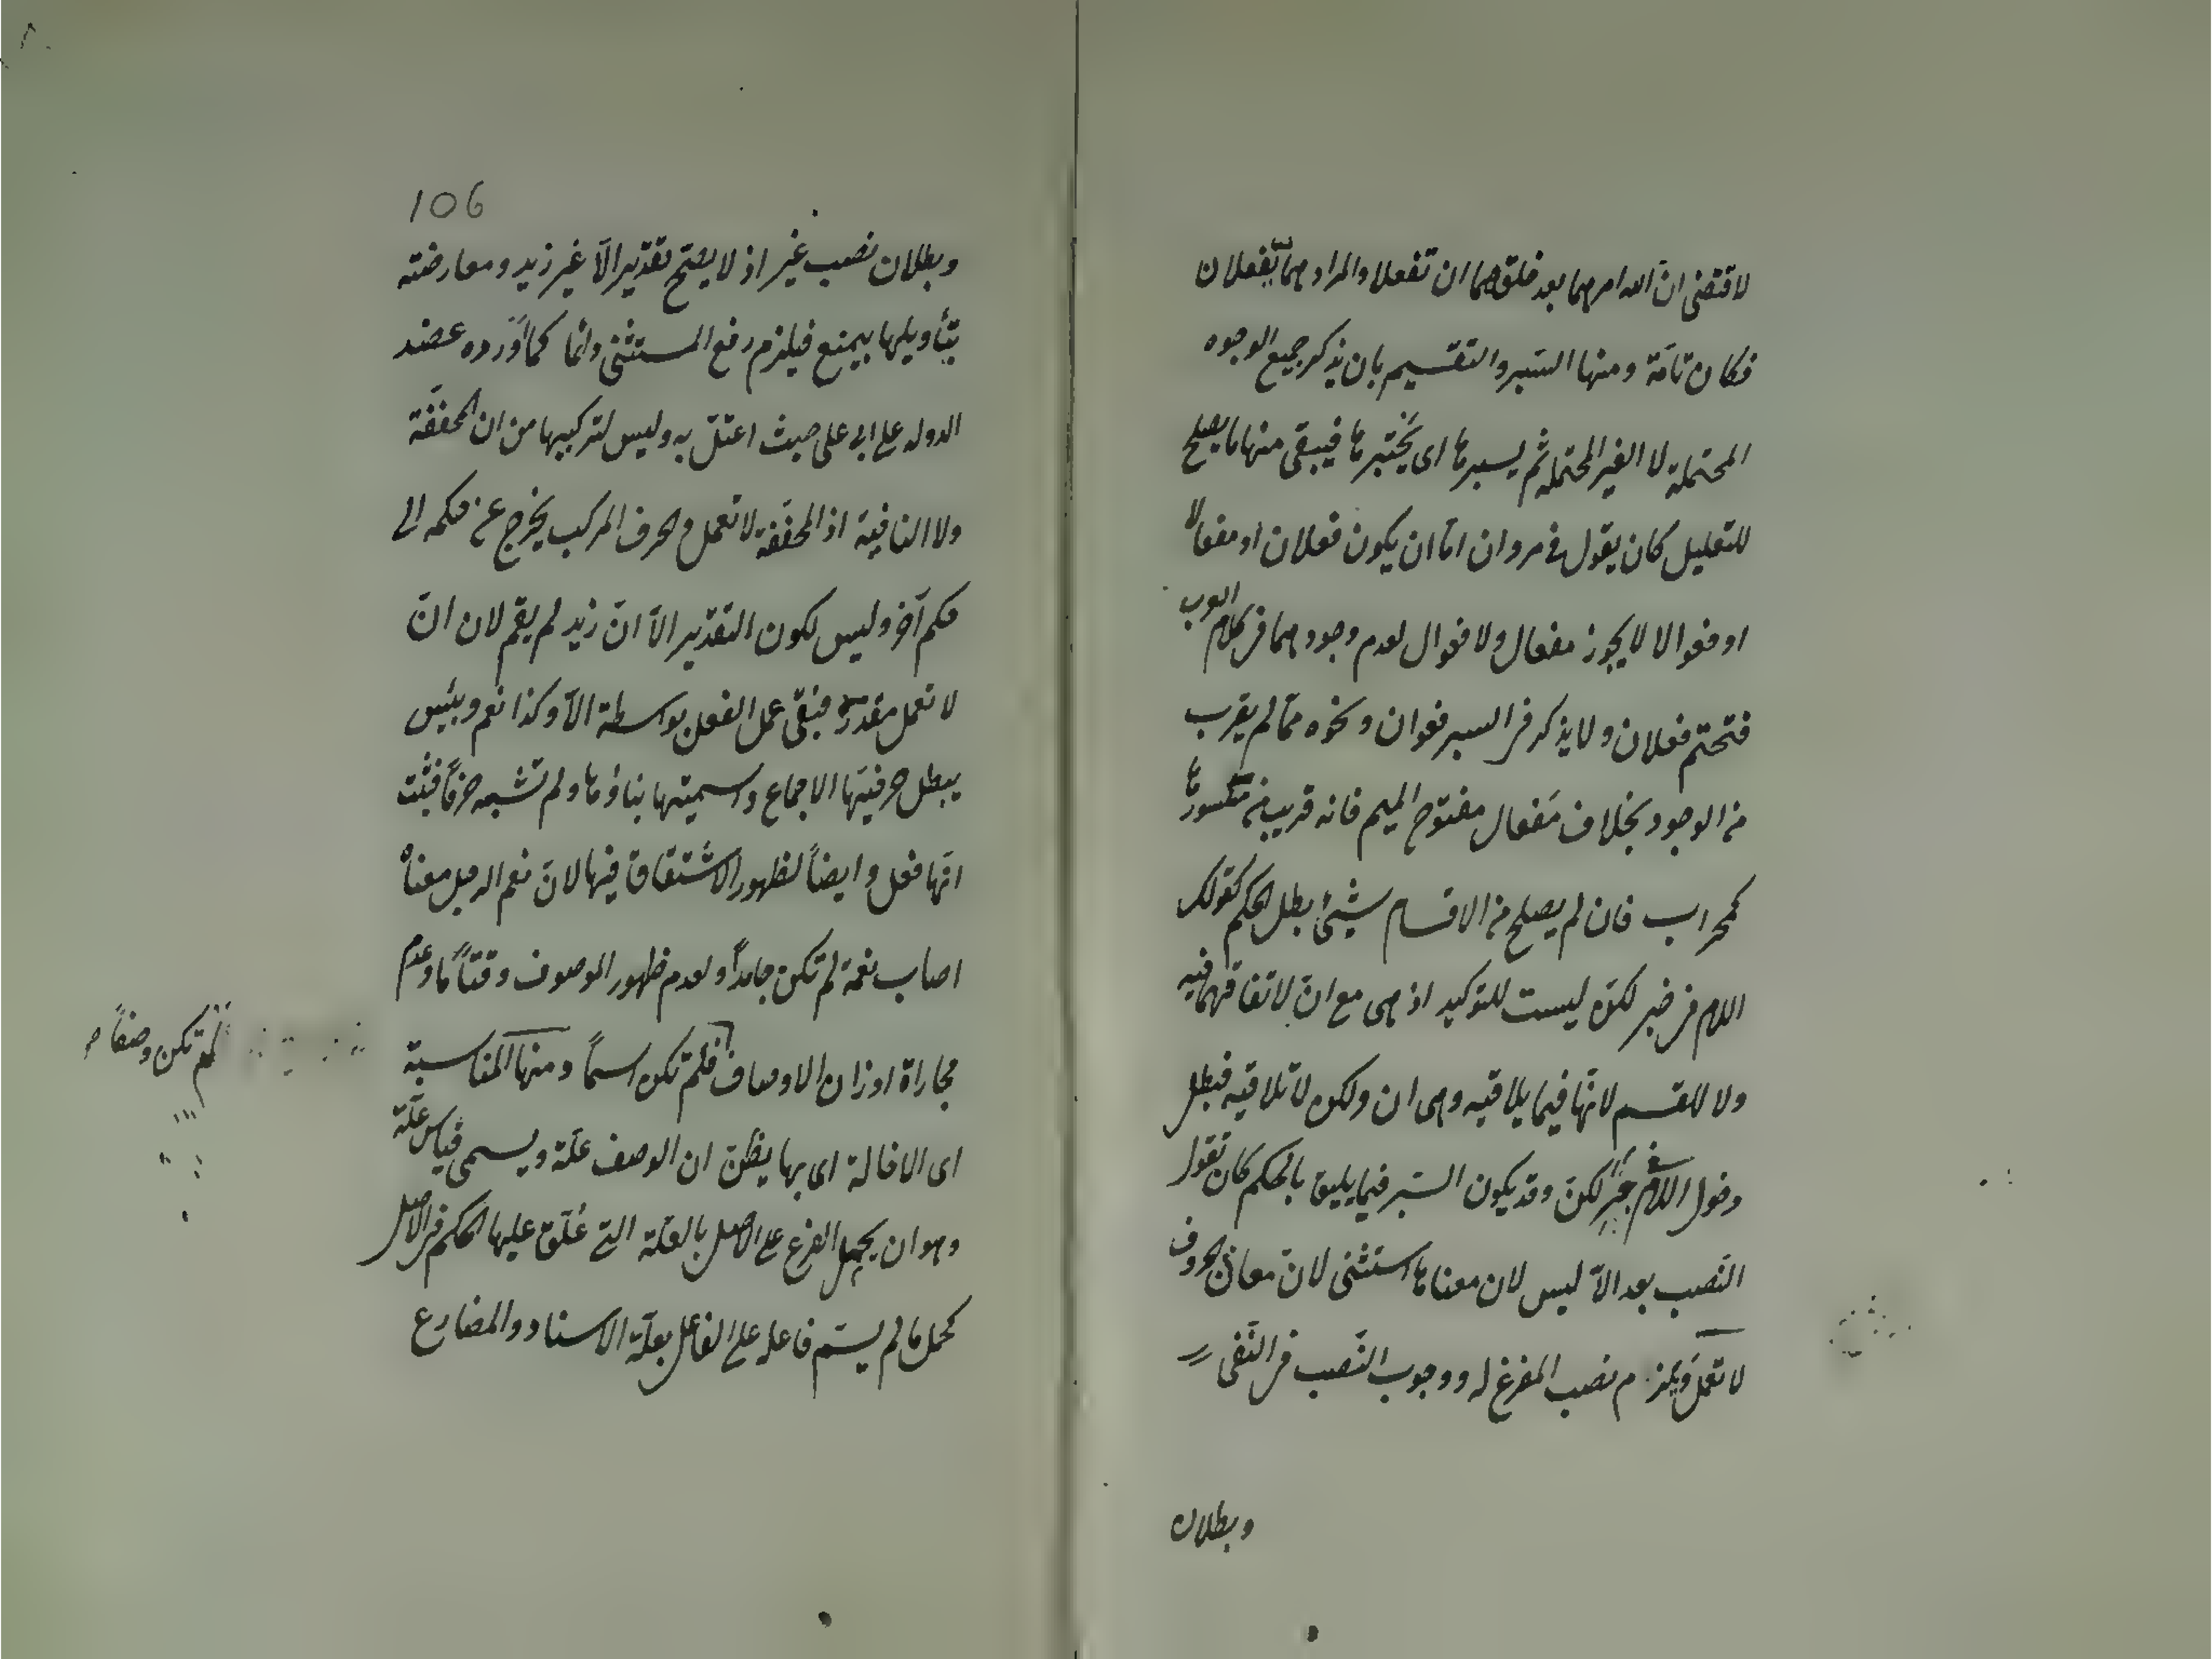 لاقتضى ان الله امرهما بعد خلقهما ان تفعلا والمراد هما تفعلان
فكان تامّة ومنها السّبر والتقسيم بان يذكر جميع الوجوه
المحتملة لا الغير المحتملة ثم يسبرها اى يختبرها فيبقى منها ما يصلح
للتعليل كان يقول فى مروان امّا ان يكون فعلان او مفعالا
او فعوالا لا يجوز مفعال ولا فعوال لعدم وجودهما فى كلام العرب
فتحتم فعلان ولا يذكر فى السبر فعوان ونحوه ممّا لم يقرب
من الوجود بخلاف مَفعال مفتوح الميم فانه قريب من مكسورها
كمحراب فان لم يصلح من الاقسام شيئ بطل الحكم كقولك
اللام فى خبر لكنّ ليست للتوكيد اذ هى مع انّ لاتفاقهما فيه
ولا للقسم لانّها فيما يلاقيه وهى ان ولكن لا تلاقيه فبطل
دخول اللام فى خبر لكنّ وقد يكون السّبر فيما يليق بالحكم كان تقول
النّصب بعد الاّ ليس لان معناها استثنى لانّ معانى الحروف
لا تعمل ويلزم نصب المفرغ له ووجوب النّصب فى النّفى
وبطلان
106
وبطلان نصب غير اذ لا يصّح تقدير الاّ غير زيد ومعارضته
بتأويلها بيمتع فيلزم رفع المستثنى دائما كما أورده عضد
الدوله على ابى على حيث اعتلّ به وليس لتركيبها من ان المخفّفة
ولا النافية اذ المخفّفة لا تعمل والحرف المركب يخرج عن حكمه الى
حكم آخر وليس لكون التقدير الاّ انّ زيد لم يقم لان انّ
لا تعمل مقدرة فبقى عمل الفعل بواسطة الاّ وكذا نعم وبئس
يبطل حرفيّتها الاجماع واسميتها بناؤها ولم تشبه حرفاً فثبت
انّها فعل وايضاً لظهور الاشتقاق فيها لانّ نعم الرجل معناه
اصاب نعمة لم تكن جامداً ولعدم ظهور الموصوف وقتاً ما وعدم
مجاراة اوزان الاوصاف فلم تكن اسماً ومنها المناسبة
لم تكن وصفاً
اى الاخالة اى بها يظنّ ان الوصف علّة ويسمى قياس علّة
وهو ان يحمل الفرع على الاصل بالعلّة التى عُلّق عليها الحكم فى الاصل
كحمل ما لم يسّم فاعله على الفاعل بعلّة الاسناد والمضارع